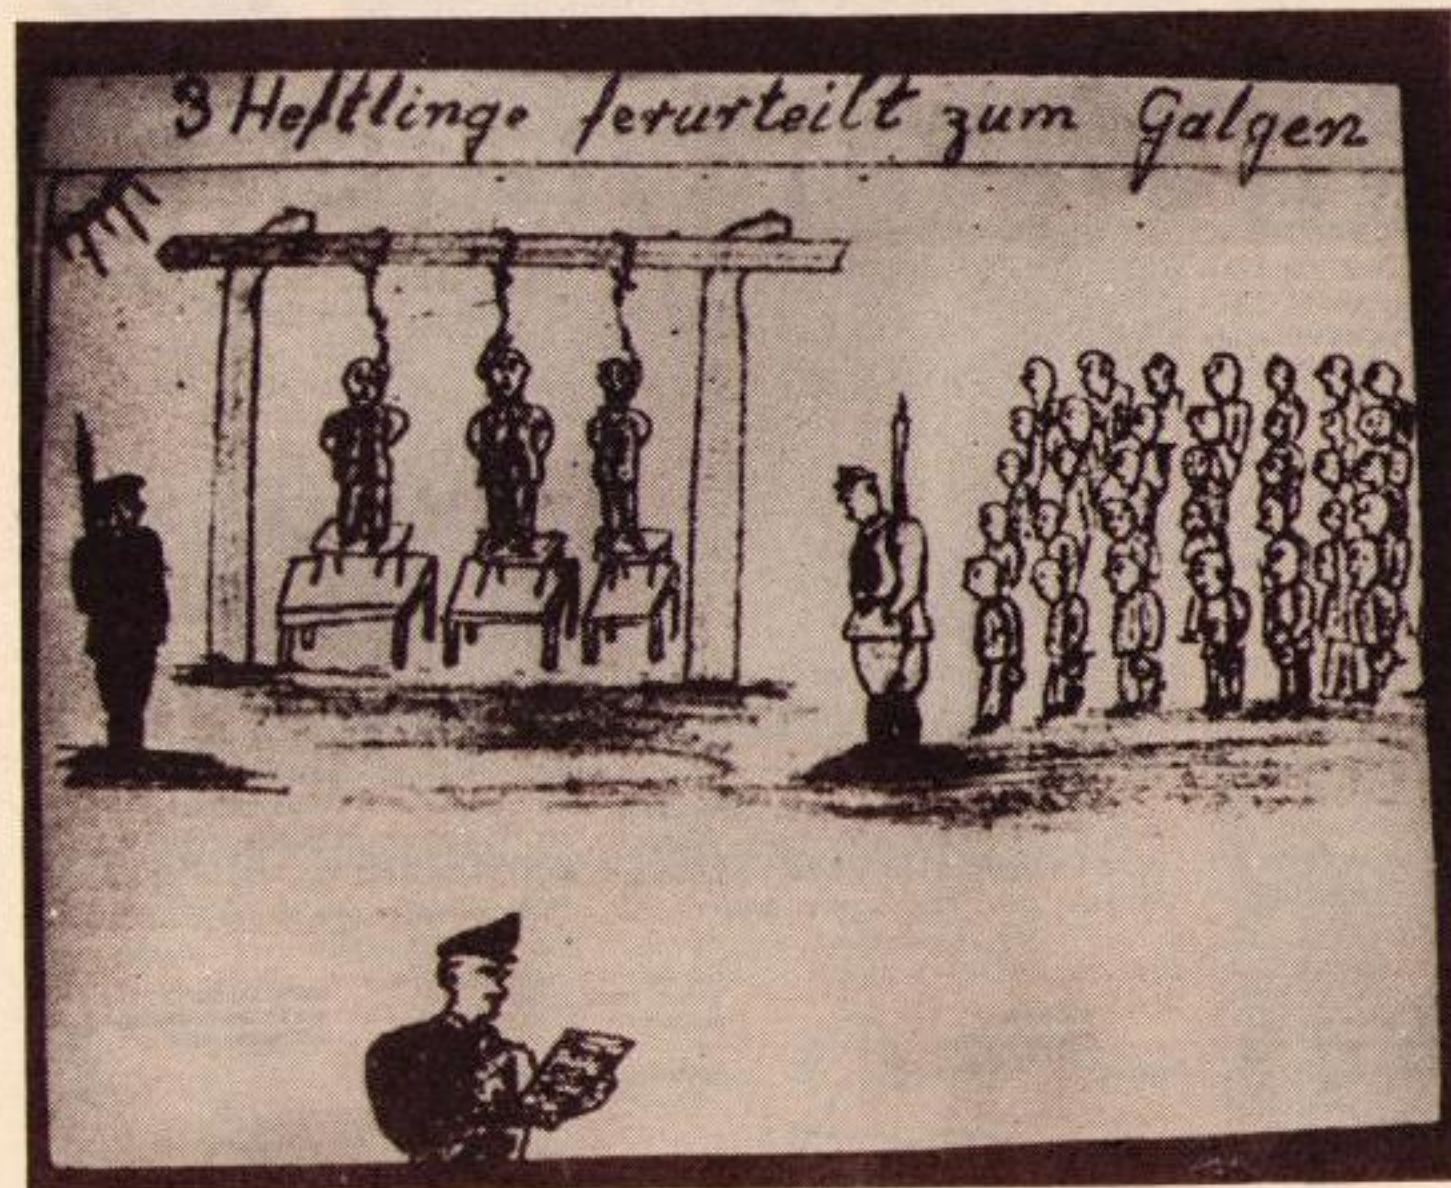 3 Heftlinge ferurteilt zum Galgen